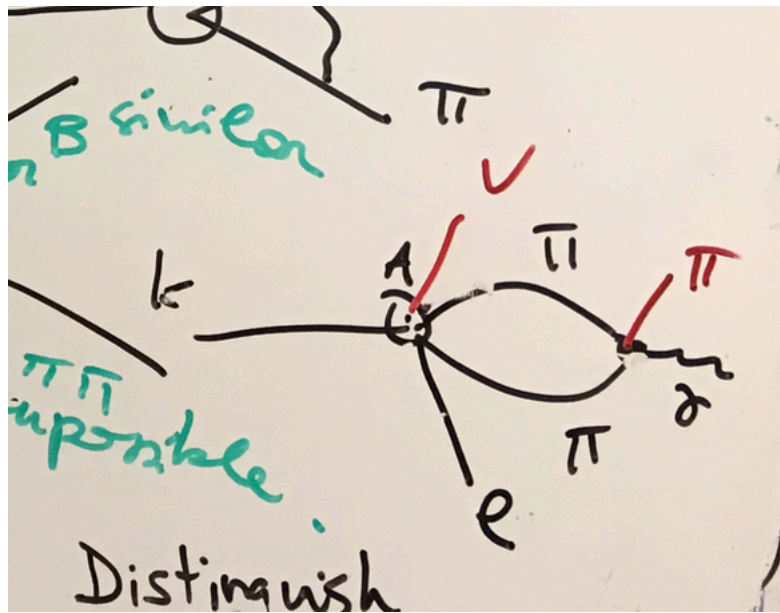 π
B similar
ν
A
π
k
π
γ
ππ
impossible.
π
e
Distinguish